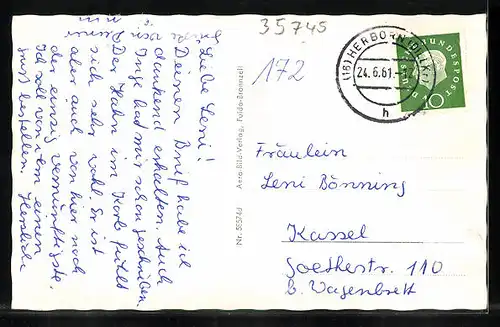 35745
172
(16) HERBORN (DILLKR)
24.6.61
h
BUNDESPOST
10
Liebe Leni!
Deinen Brief habe ich
dankend erhalten. Auch
Inge hat mir schon geschrieben
Der Hahn im Korb fühlt
sich sehr wohl. Er ist
aber auch von hier noch
der einzig vernünftigste.
Ich soll von dem einen
Gruß bestellen. Herzlich
Aero-Bild-Verlag, Fulda-Bronnzell
Nr. 5557
Fräulein
Leni Bönning
Kassel
Goethestr. 110
b. Wagenbrett